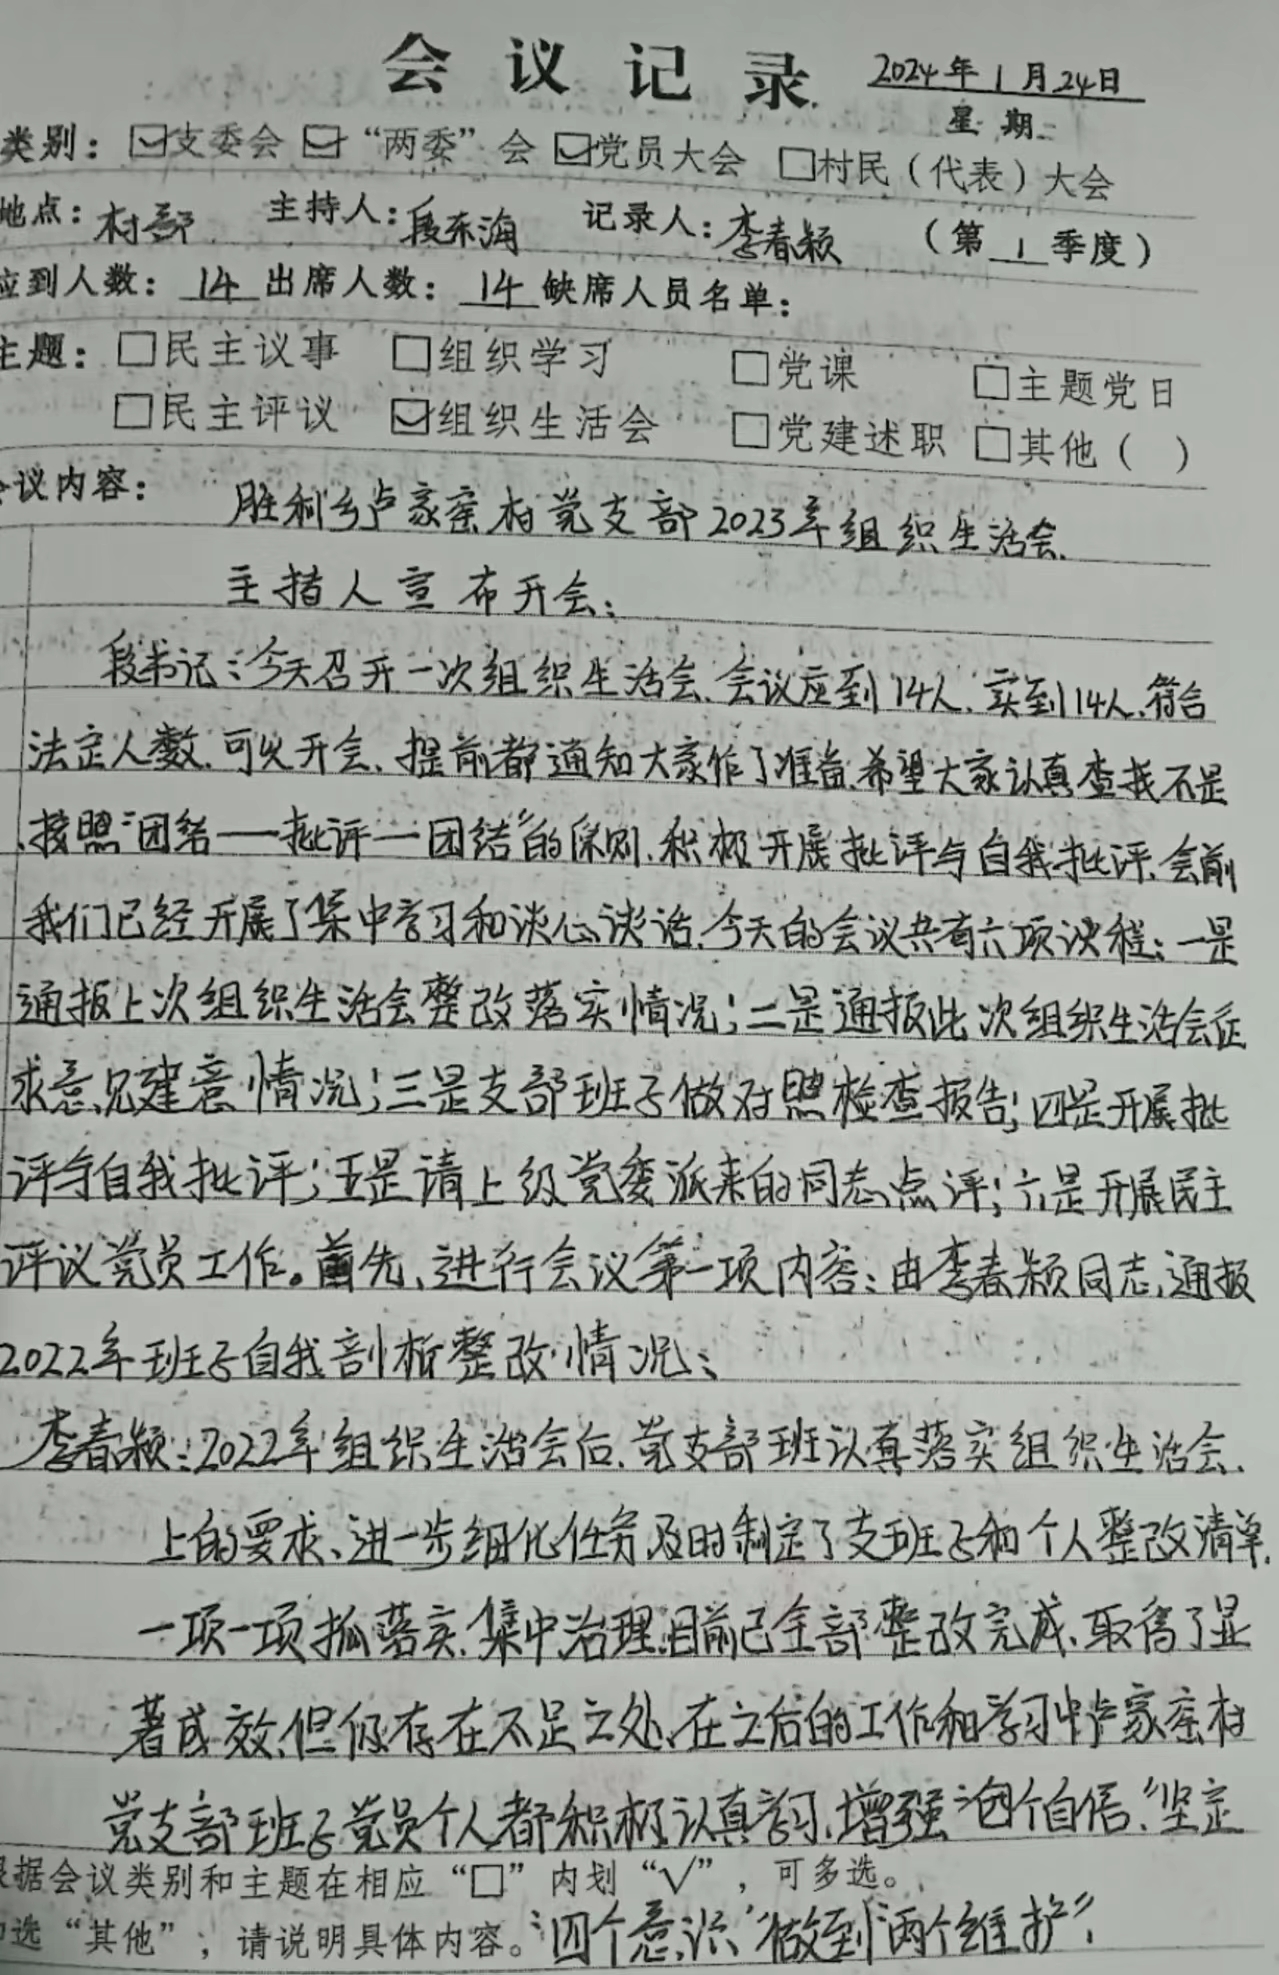 会议记录
2024年1月24日
星期
类别：☑支委会 ☑“两委”会 ☑党员大会 □村民（代表）大会
地点：村部 主持人：段东海 记录人：李春颖 （第1季度）
应到人数：14 出席人数：14 缺席人员名单：
主题：□民主议事 □组织学习 □党课 □主题党日
□民主评议 ☑组织生活会 □党建述职 □其他（ ）
会议内容： 胜利乡卢家窑村党支部2023年组织生活会.
主持人宣布开会：
段书记：今天召开一次组织生活会、会议应到14人、实到14人、符合
法定人数、可以开会、提前都通知大家作了准备、希望大家认真查找不足
、按照“团结——批评—团结”的原则、积极开展批评与自我批评、会前
我们已经开展了集中学习和谈心谈话、今天的会议共有六项议程：一是
通报上次组织生活会整改落实情况；二是通报此次组织生活会征
求意见建意情况；三是支部班子做对照检查报告；四是开展批
评与自我批评；五是请上级党委派来的同志点评；六是开展民主
评议党员工作。首先、进行会议第一项内容：由李春颖同志，通报
2022年班子自我剖析整改情况：
李春颖：2022年组织生活会后、党支部班认真落实组织生活会、
上的要求、进一步细化任务及时制定了支班子和个人整改清单、
一项一项抓落实、集中治理、目前已全部整改完成、取得了显
著成效、但仍存在不足之处、在之后的工作和学习中卢家窑村
党支部班子党员个人都积极认真学习、增强“四个自信、“坚定
根据会议类别和主题在相应“□”内划“√”，可多选。
如选“其他”；请说明具体内容。“四个意识”“做到“两个维护”；